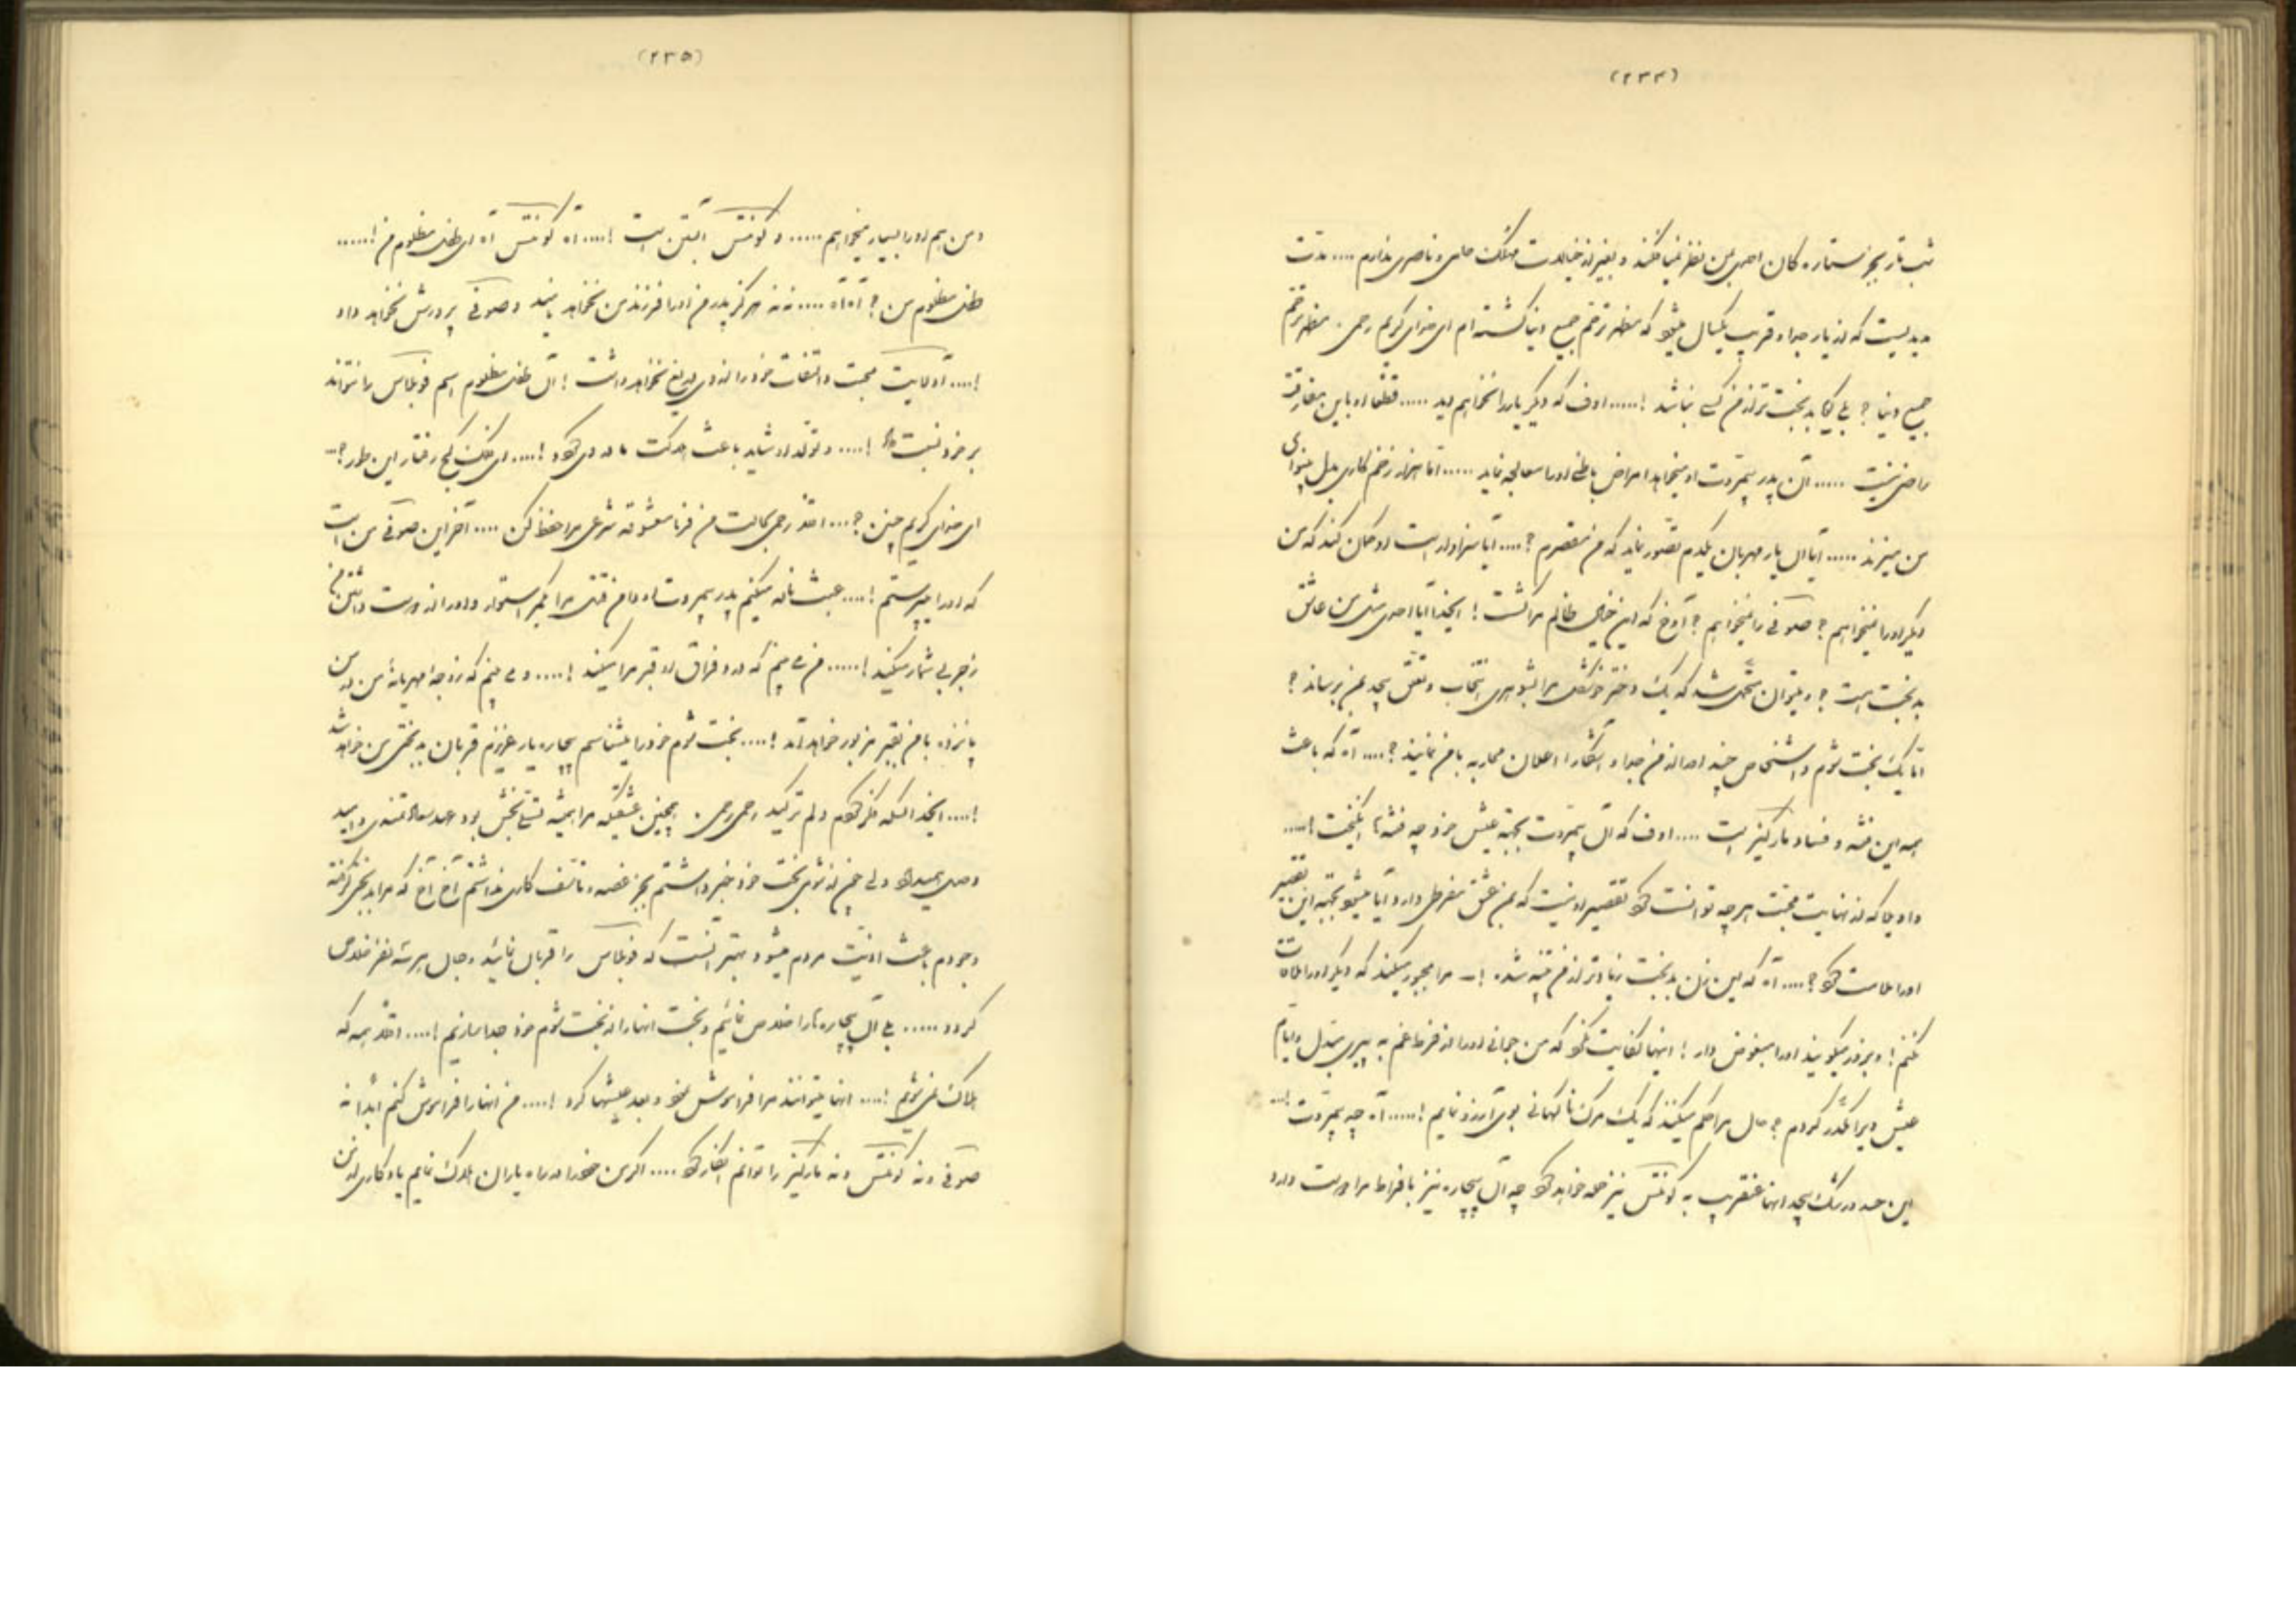 (۲۳۴)
شب تار بجز ستاره کان احدی بمن نظر نمیافکند و بغیر از خیالات مهلک حامی و ناصری ندارم .... مدت
مدیدیست که از یار جدا و قریب یکسال میشود که مظهر ترحم جمیع دنیا گشته ام ای خدای کریم رحمی . مظهر ترحم
جمیع دنیا ؟ بلی گویا بدبخت تر از من کسی نباشد !..... اوف که دیگر یار را نخواهم دید ..... قطعا او باین مفارقت
راضی نیست ..... آن پدر بیمروت او میخواهد امراض باطنی او را معالجه نماید ..... اما هزار زخم کاری بدل بینوای
من میزند ..... آیا آن یار مهربان یکدم تصور نماید که من مقصرم ؟.... آیا سزاوار است او گمان کند که من
دیگر او را نمیخواهم ؟ صوفی را نمیخواهم ؟ آوخ که این خیال ظالم مرا کشت ! ایخدا آیا احدی مثل من عاشق
بدبخت هست ؟ و میتوان متحمل شد که یک دختر خوشگل مرا بشوهری انتخاب و تعشق بیحد بمن برساند ؟
اما یک بخت شوم و اشخاص چند او را از من جدا و آشکارا اعلان محاربه با من نمایند ؟.... آه که باعث
همه این فتنه و فساد مارکیز است .... اوف که آن بیمروت بجهة عیش خود چه فتنه ها انگیخت !....
داد بیجا که از نهایت محبت هر چه توانست کرد تقصیر او نیست که بمن عشق مفرطی دارد آیا میشود بجهة این تقصیر
او را ملامت کرد ؟.... آه که این زن بدبخت زیادتر از من فتنه شده !.. مرا مجبور میکنند که دیگر او را ملاقات
نکنم ! و بزور میگویند او را مبغوض دار ! اینها کفایت نکرد که من جوانی او را از فرط غم به پیری مبدل و ایام
عیش ویرا مکدر کردم ؟ حال مرا حکم میکنند که یک مرک ناگهانی بوی آرزو نمایم !..... آه چه بیمروت !...
این حسد و رشک بیحد اینها عنقریب به کونتس نیز حمله خواهد کرد چه آن بیچاره نیز بافراط مرا دوست دارد
(۲۳۵)
و من هم او را بسیار میخواهم ..... و کونتس آبستن است !.... آه کونتس آه ای طفل مظلوم من !.....
طفل مظلوم من ؟ آه آه .... نه نه هرگز پدر من او را فرزند من نخواهد نامید و صوفی پرورش نخواهد داد
!.... آدلاییت محبت و التفات خود را از وی دریغ نخواهد داشت ! آن طفل مظلوم اسم فوبلاس را نتواند
بر خود نسبت داد !.... و تولد او شاید باعث هلاکت مادر وی گردد !.... ای فلک کج رفتار این طور ؟...
ای خدای کریم چنین ؟.... اقلا رحمی بحالت من فرما معشوقه شرعی مرا حفظ کن .... آخر این صوفی من است
که او را میپرستم !.... عبث ناله میکنم پدر بیمروت او دامن قتل مرا بکمر استوار و او را از دوست داشتن من
زجر بی شمار میکند !..... من می بینم که درد فراق او قبر مرا میکند !.... و می بینم که زوجه مهربانه من در سن
پانزده با من بقبر مزبور خواهد آمد !.... بخت شوم خود را میشناسم بیچاره یار عزیزم قربان بدبختی من خواهد شد
!.... ایخدا از بسکه فکر کردم دلم ترکید رحمی رحمی . همچنین عشقیکه مرا همیشه تسلی بخش بود
وصل میداد ولی چون از شومی بخت خود خبر داشتم بجز غصه و تأسف کاری نداشتم آخ آخ که مرا بدبختی گرفته
وجودم باعث اذیت مردم میشود بهتر آنست که فوبلاس را قربان نمائید و حال هر سه نفر خلاص
گردد ..... بلی آن بیچاره ها را خلاص نمائیم و بخت انها را از بخت شوم خود جدا سازیم !.... اقلا همه که
هلاک نمی شویم !.... انها میتوانند مرا فراموش نمود و بعد عیشها کرد !.... من انها را فراموش کنم ابدا نه
صوفی و نه کونتس و نه مارکیز را توانم انکار کرد .... اگر من خود را در راه یاران هلاک نمایم یادگاری از من